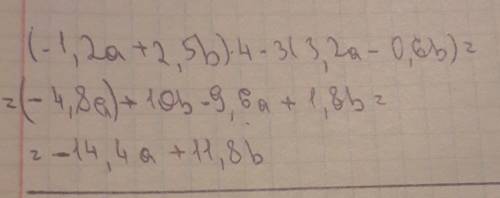 (-1,2a+2,5b)·4-3(3,2a-0,6b)=
=(-4,8a)+10b-9,6a+1,8b=
=-14,4a+11,8b